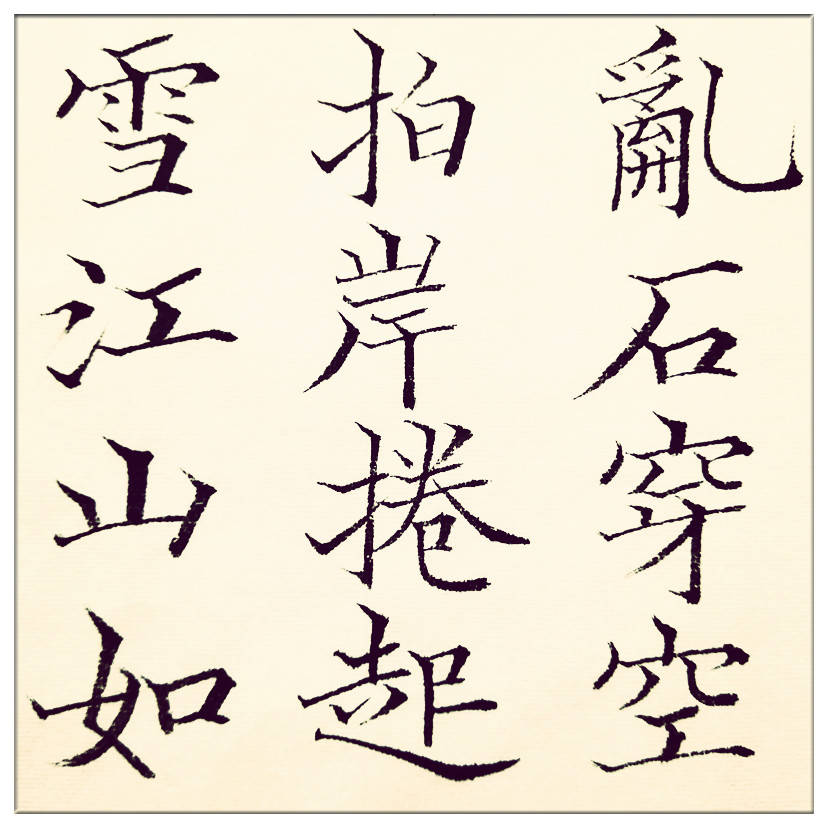 亂石穿空
拍岸捲起
雪江山如